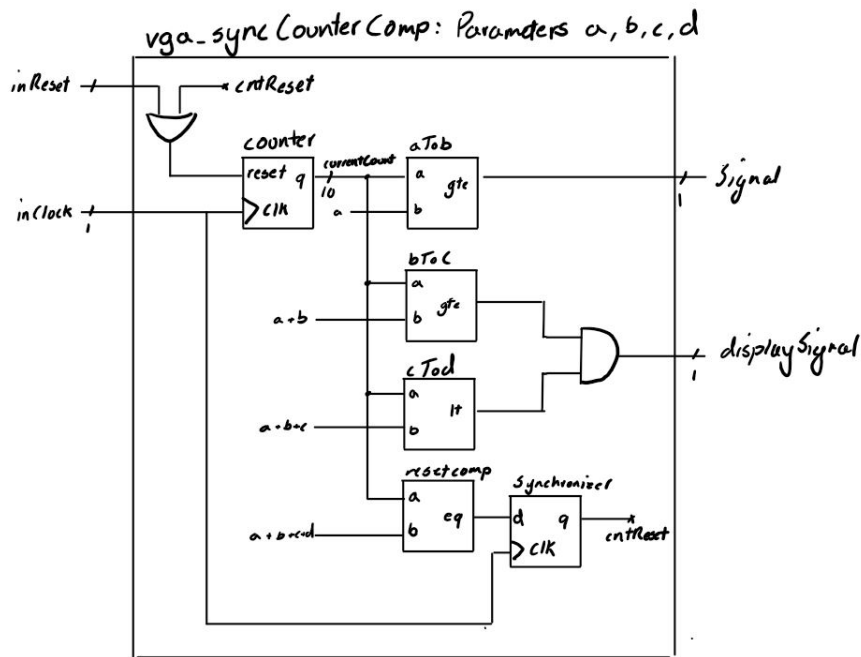 vga_sync Counter Comp: Parameters a, b, c, d
inReset
cntReset
counter
reset q
clk
currentCount
10
aTob
a
gte
b
a
Signal
1
inClock
1
bToC
a
gte
b
a+b
displaySignal
1
cTod
a
lt
b
a+b+c
resetcomp
a
eq
b
a+b+c+d
Synchronizer
d q
clk
cntReset